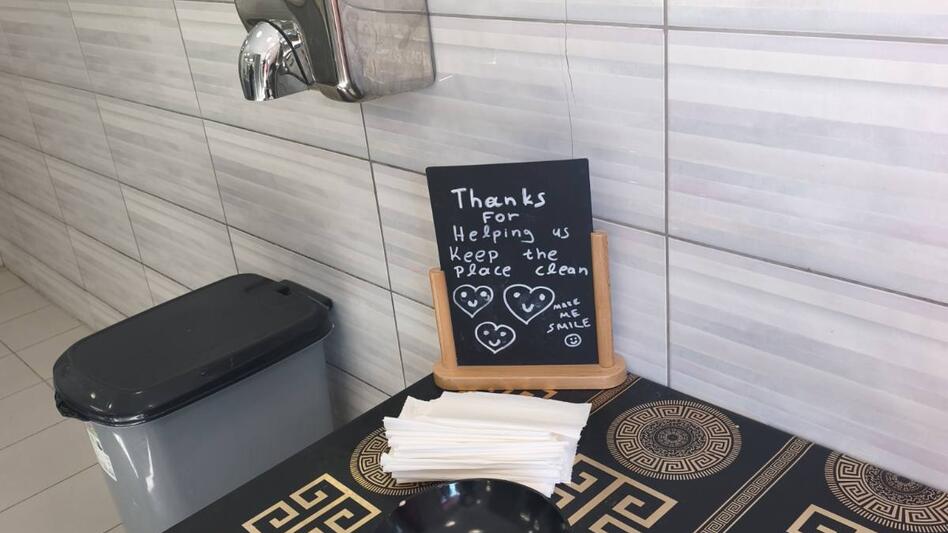 Thanks
For
Helping us
Keep the
place clean
MAKE
ME
SMILE